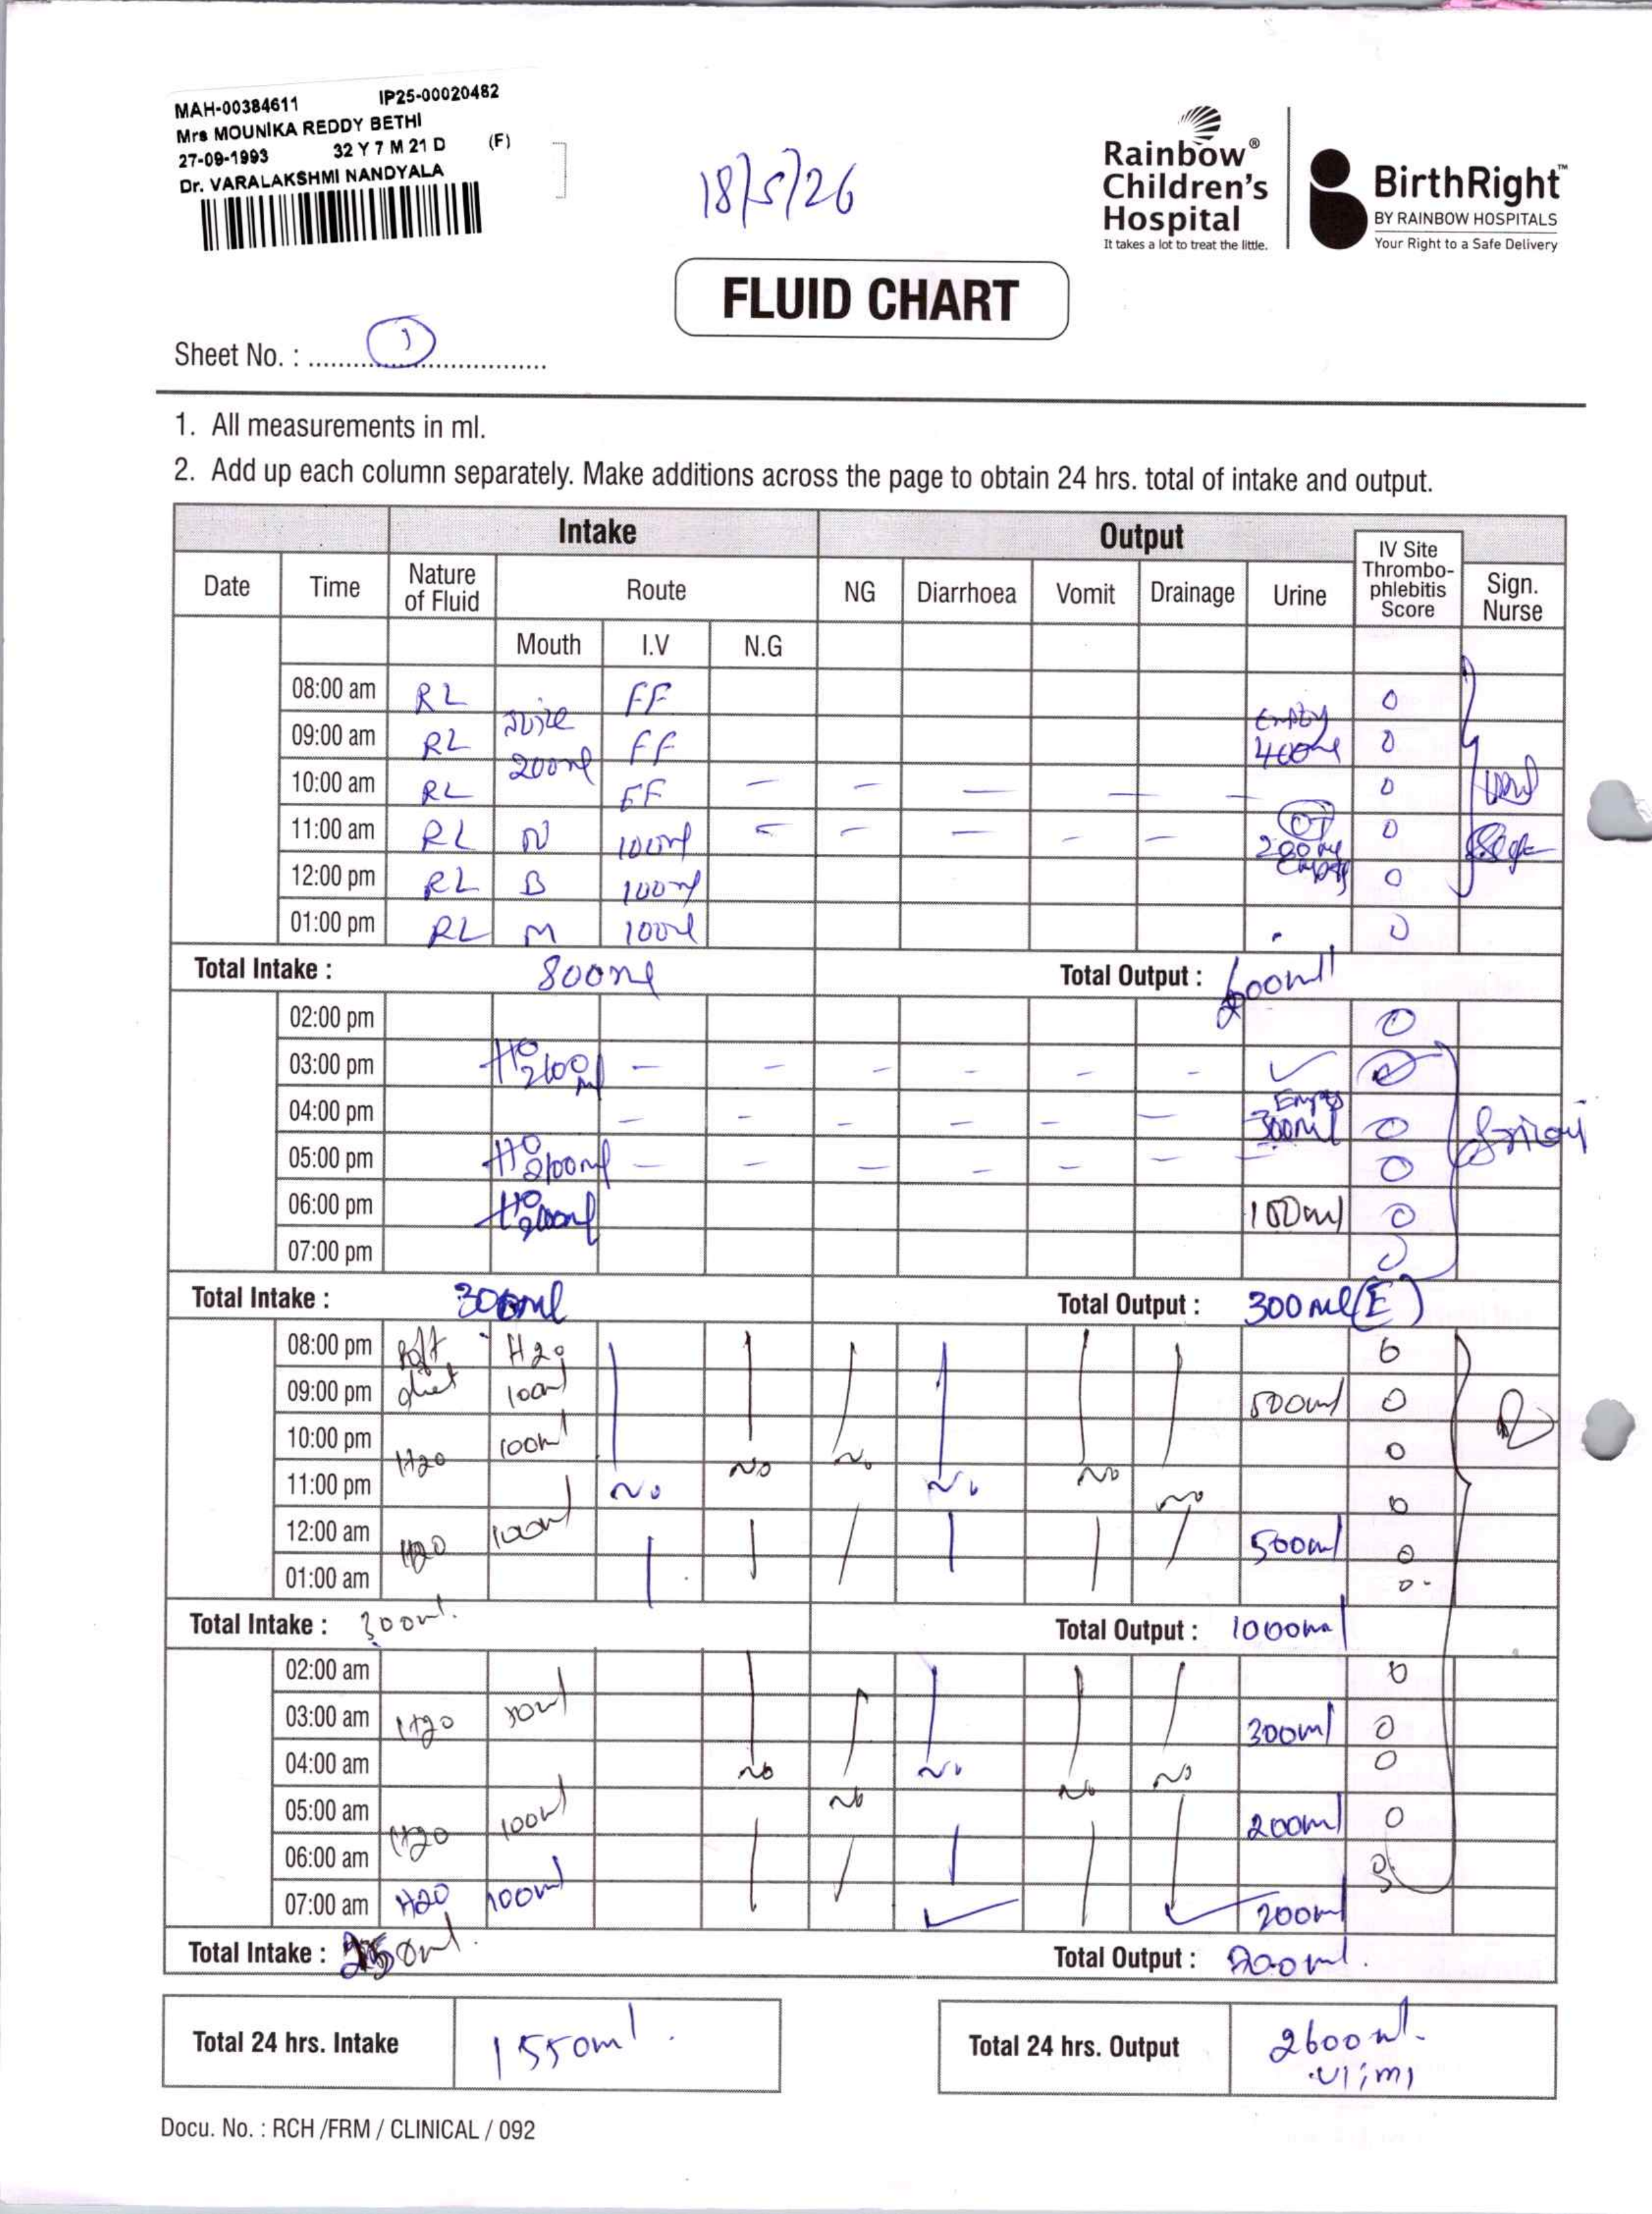 MAH-00384611 IP25-00020482
Mrs MOUNIKA REDDY BETHI
27-09-1993 32 Y 7 M 21 D (F)
Dr. VARALAKSHMI NANDYALA
18/5/26
Rainbow®
Children's
Hospital
It takes a lot to treat the little.
BirthRight™
BY RAINBOW HOSPITALS
Your Right to a Safe Delivery
FLUID CHART
Sheet No. : 1
1. All measurements in ml.
2. Add up each column separately. Make additions across the page to obtain 24 hrs. total of intake and output.
Intake Output
Date Time Nature of Fluid Route NG Diarrhoea Vomit Drainage Urine IV Site Thrombo-phlebitis Score Sign. Nurse
Mouth I.V N.G
08:00 am RL FF 0
Juice Empty
09:00 am RL 200ml FF 400ml 0
10:00 am RL FF - - - - - 0
11:00 am RL N 100ml - - - - - OT 200ml 0
12:00 pm RL B 100ml Empty 0
01:00 pm RL M 100ml 0
Total Intake : 800ml Total Output : 600ml
02:00 pm 0
03:00 pm - - - - - - ✓ 0
04:00 pm - - - - - - Empty 300ml 0
05:00 pm - - - - - - - 0
06:00 pm 100ml 0
07:00 pm 0
Total Intake : 300ml Total Output : 300ml (E)
08:00 pm Soft H2o 0
09:00 pm diet 100ml 500ml 0
10:00 pm H20 100ml 0
No No No No
11:00 pm No No 0
12:00 am H20 100ml 500ml 0
01:00 am 0
Total Intake : 300ml. Total Output : 1000ml
02:00 am 0
03:00 am H20 50ml 300ml 0
04:00 am No No No No No 0
05:00 am H20 100ml 200ml 0
06:00 am 0
07:00 am H20 100ml ✓ ✓ 200ml
Total Intake : 250ml. Total Output : 700ml.
Total 24 hrs. Intake 1550ml. Total 24 hrs. Output 2600ml.
Docu. No. : RCH /FRM / CLINICAL / 092